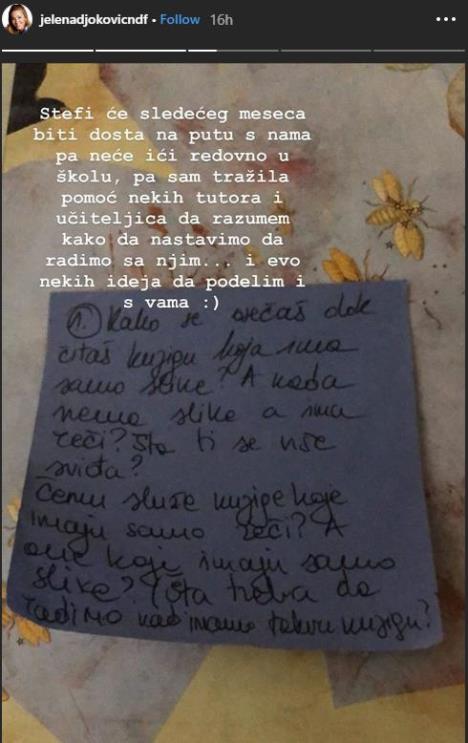 jelenadjokovicndf • Follow 16h
Stefi će sledećeg meseca
biti dosta na putu s nama
pa neće ići redovno u
školu, pa sam tražila
pomoć nekih tutora i
učiteljica da razumem
kako da nastavimo da
radimo sa njim... i evo
nekih ideja da podelim i
s vama :)
1. Kako se osećaš dok
čitaš knjigu koja ima
samo slike? A kada
nema slike a ima
reči? Šta ti se više
sviđa?
Čemu služe knjige koje
imaju samo reči? A
one koje imaju samo
slike? Šta treba da
radimo kad imamo takvu knjigu?